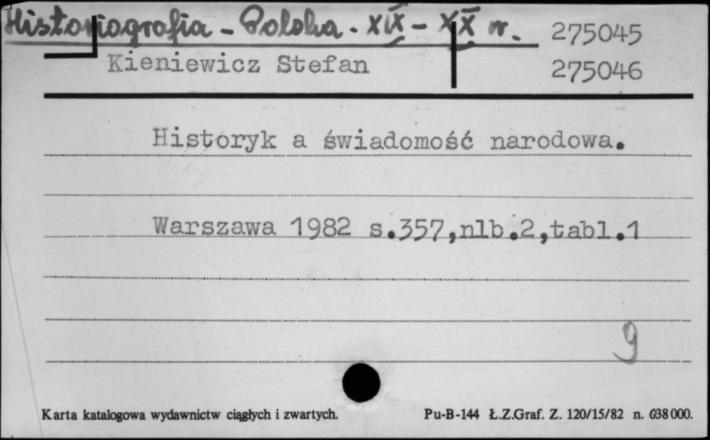 Historiografia - Polska - XIX - XX w. 275045
Kieniewicz Stefan 275046
Historyk a świadomość narodowa.
Warszawa 1982 s.357,nlb.2,tabl.1
9
Karta katalogowa wydawnictw ciągłych i zwartych. Pu-B-144 Ł.Z.Graf. Z. 120/15/82 n. 638000.